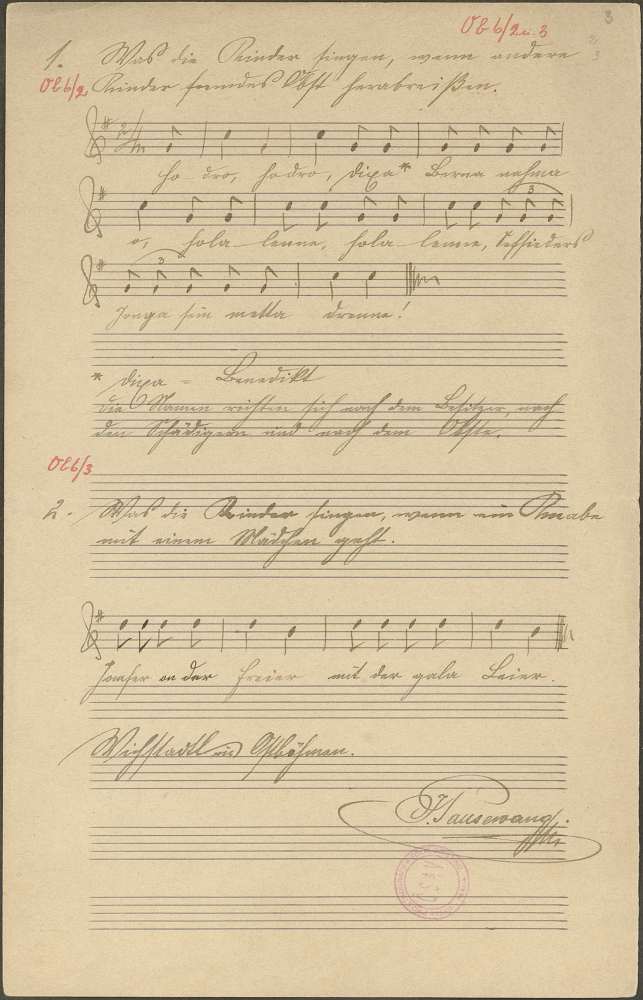 Ob 6/2 u. 3
3
1. Was die Kinder singen, wenn andere
Ob 6/2 Kinder fremdes Obst herabreißen.
2/4
ho- dro, hodro, Dixa* Berna nahma
3
o, hola- lenne, hola- lenne,
3
Jonga sein metta drenne!
* Dixa = Benedikt
Die Namen richten sich nach dem Besitzer, nach
den Schädigern und nach dem Obste.
Ob 6/3
2. Was die Kinder singen, wenn ein Knabe
mit einem Mädchen geht.
Jomfer on der Freier mit der gala Leier.
Wichstadtl in Ostböhmen.
J. Tausewang